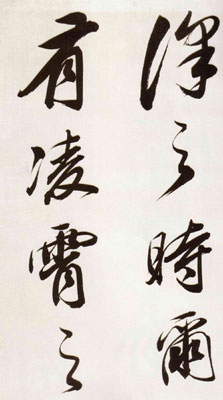 澤之時爾
有凌霄之